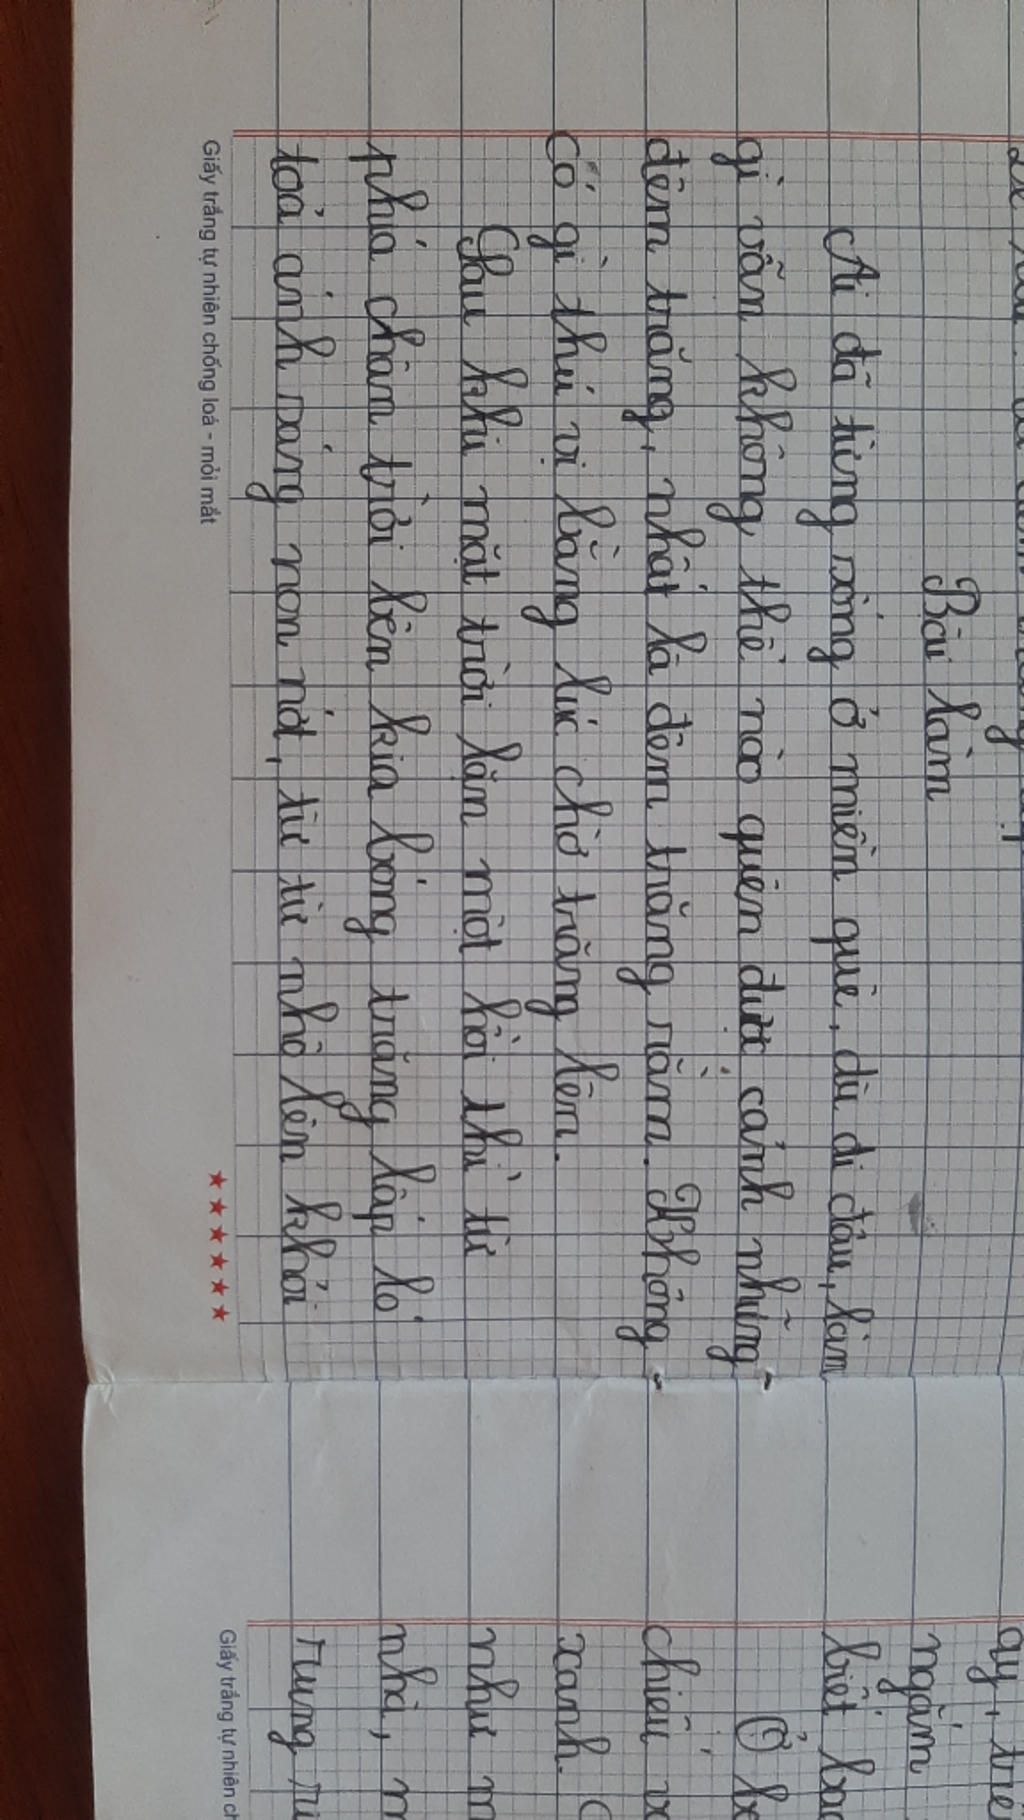 Bài làm
Ai đã từng sống ở miền quê, dù đi đâu, làm
gì vẫn không thể nào quên được cảnh những
đêm trăng, nhất là đêm trăng rằm. Không
có gì thú vị bằng lúc chờ trăng lên.
Sau khi mặt trời lặn một hồi thì từ
phía chân trời bên kia bóng trăng lấp ló
toả ánh sáng non nớt, từ từ nhô lên khỏi
Giấy trắng tự nhiên chống loá - mỏi mắt
ngắm
biết bao
Ở
chiếu
xanh.
như
nhà,
Giấy trắng tự nhiên